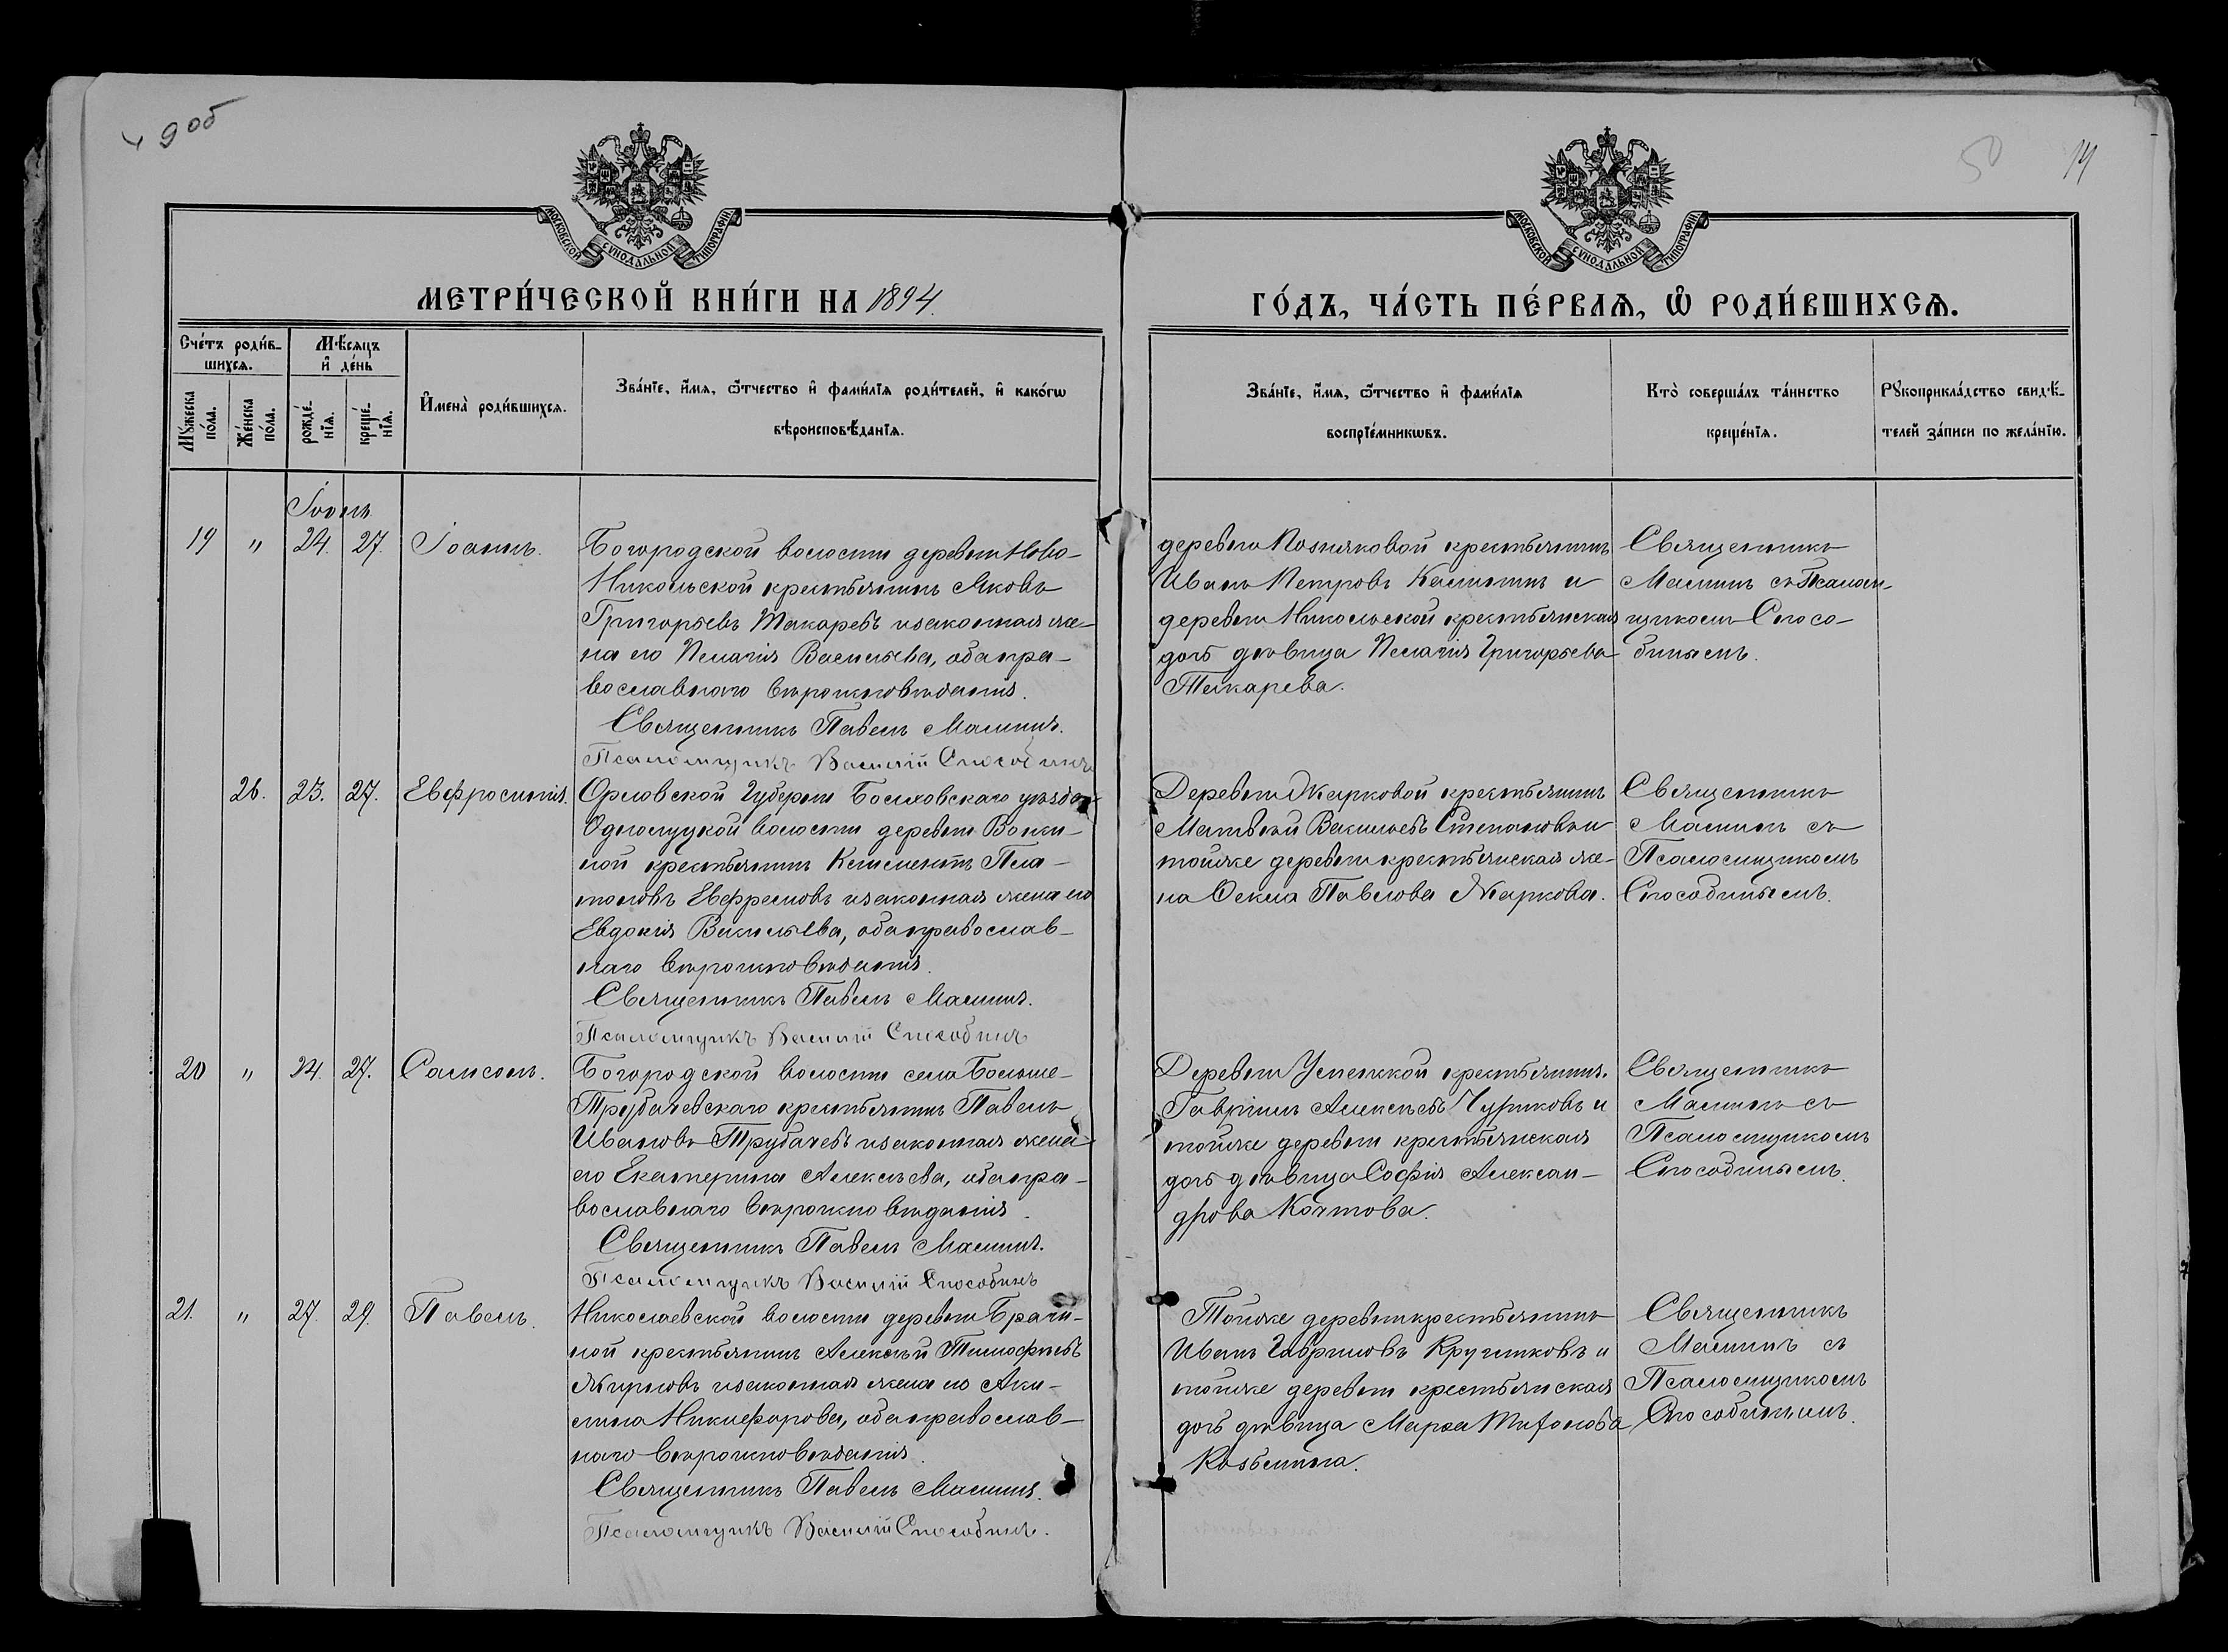 49 об
50
14
МОСКОВСКОЙ СѴНОДАЛЬНОЙ ТИПОГРАФІИ
МОСКОВСКОЙ СѴНОДАЛЬНОЙ ТИПОГРАФІИ
МЕТРИ́ЧЕСКОЙ КНИ́ГИ НА 1894.
ГО́ДЪ, ЧА́СТЬ ПЕ́РВАѦ, Ѡ҆ РОДИ́ВШИХСѦ.
Сче́тъ роди́в-
шихсѧ.
Мѣ́сѧцъ
и҆ де́нь
Мꙋ́жеска
по́ла.
Же́нска
по́ла.
рожде́-
нїѧ.
креще́-
нїѧ.
И҆мена̀ роди́вшихсѧ.
Зва́нїе, и҆́мѧ, ѻ҆́тчество и҆ фами́лїѧ роди́телей, и҆ како́гѡ
вѣроисповѣ́данїѧ.
Зва́нїе, и҆́мѧ, ѻ҆́тчество и҆ фами́лїѧ
воспрїе́мникѡвъ.
Кто̀ соверша́лъ та́инство
креще́нїѧ.
Рꙋкоприкла́дство свидѣ́-
телей за́писи по жела́нїю.
Іюнь
19 " 24. 27. Іоаннъ.
Богородской волости деревни Ново-
Никольской крестьянинъ Яковъ
Григорьевъ Токаревъ и законная же-
на его Пелагія Васильева, оба пра-
вославнаго вѣроисповѣданія.
Священникъ Павелъ Малининъ.
Псаломщикъ Василій Способинъ
деревни Позняковой крестьянинъ
Иванъ Петровъ Калининъ и
деревни Никольской крестьянская
дочь дѣвица Пелагія Григорьева
Токарева.
Священникъ
Малининъ съ Псалом-
щикомъ Спосо-
бинымъ.
26. 23. 27. Евфросинія.
Орловской Губерніи Болховскаго уѣзда
Однолуцкой волости деревни Вонки-
ной крестьянинъ Климентъ Пла-
тоновъ Евфремовъ и законная жена его
Евдокія Васильева, оба православ-
наго вѣроисповѣданія.
Священникъ Павелъ Малининъ.
Псаломщикъ Василій Способинъ
Деревни Жарковой крестьянинъ
Матвѣй Васильевъ Степановъ и
тойже деревни крестьянская же-
на Ѳекла Павлова Жаркова.
Священникъ
Малининъ съ
Псаломщикомъ
Способинымъ.
20 " 24. 27. Сампсонъ.
Богородской волости села Больше-
Трубачевскаго крестьянинъ Павелъ
Ивановъ Трубачевъ и законная жена
его Екатерина Алексѣева, оба пра-
вославнаго вѣроисповѣданія.
Священникъ Павелъ Малининъ.
Псаломщикъ Василій Способинъ
Деревни Успенской крестьянинъ
Гавріилъ Алексѣевъ Чуриковъ и
тойже деревни крестьянская
дочь дѣвица Софія Алексан-
дрова Коптова.
Священникъ
Малининъ съ
Псаломщикомъ
Способинымъ.
21. " 27. 29. Павелъ.
Николаевской волости деревни Брати-
ной крестьянинъ Алексѣй Тимофѣевъ
Жирновъ и законная жена его Аки-
лина Никифорова, оба православ-
наго вѣроисповѣданія.
Священникъ Павелъ Малининъ.
Псаломщикъ Василій Способинъ.
Тойже деревни крестьянинъ
Иванъ Гавриловъ Кругликовъ и
тойже деревни крестьянская
дочь дѣвица Марѳа Тихонова
Козьмина.
Священникъ
Малининъ съ
Псаломщикомъ
Способинымъ.